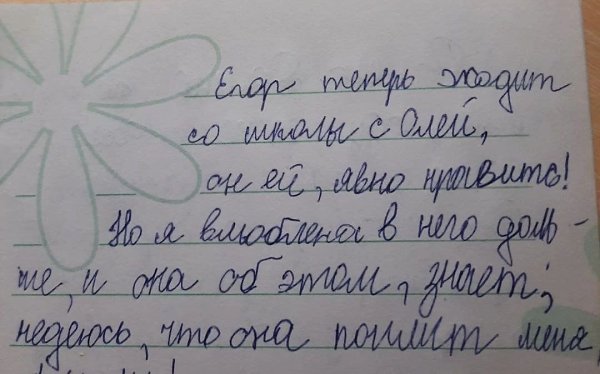 Егор теперь ходит
со школы с Олей,
он ей, явно нравить!
Но я влюблена в него доль-
ше, и она об этом, знает;
недеюсь, что она поймит меня,